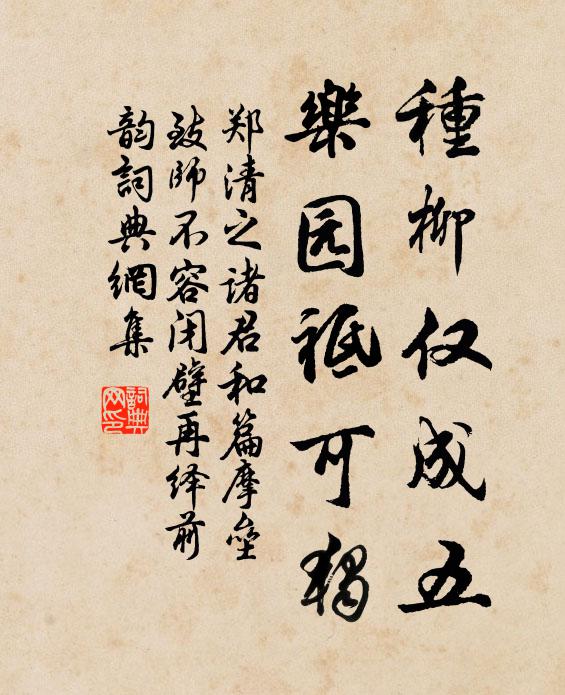 種柳仅成五
樂园祗可獨
郑清之诸君和篇摩垒
致师不容闭壁再绎前
韵詞典網集
詞典网印